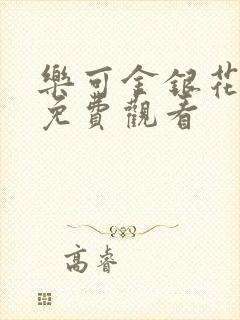 樂可金銀花
免費觀看
高睿